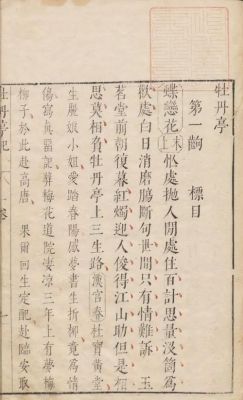 牡丹亭
第一齣 標目
蝶戀花末上忙處拋人閒處住百計思量沒箇為
歡處白日消磨腸斷句世間只有情難訴 玉
茗堂前朝復暮紅燭迎人俊得江山助但是相
思莫相負牡丹亭上三生路漢宮春杜寶黃堂
生麗娘小姐愛踏春陽感夢書生折柳竟為情
傷寫真留記葬梅花道院淒涼三年上有夢梅
柳子於此赴高唐 果爾回生定配赴臨安取
牡丹亭記